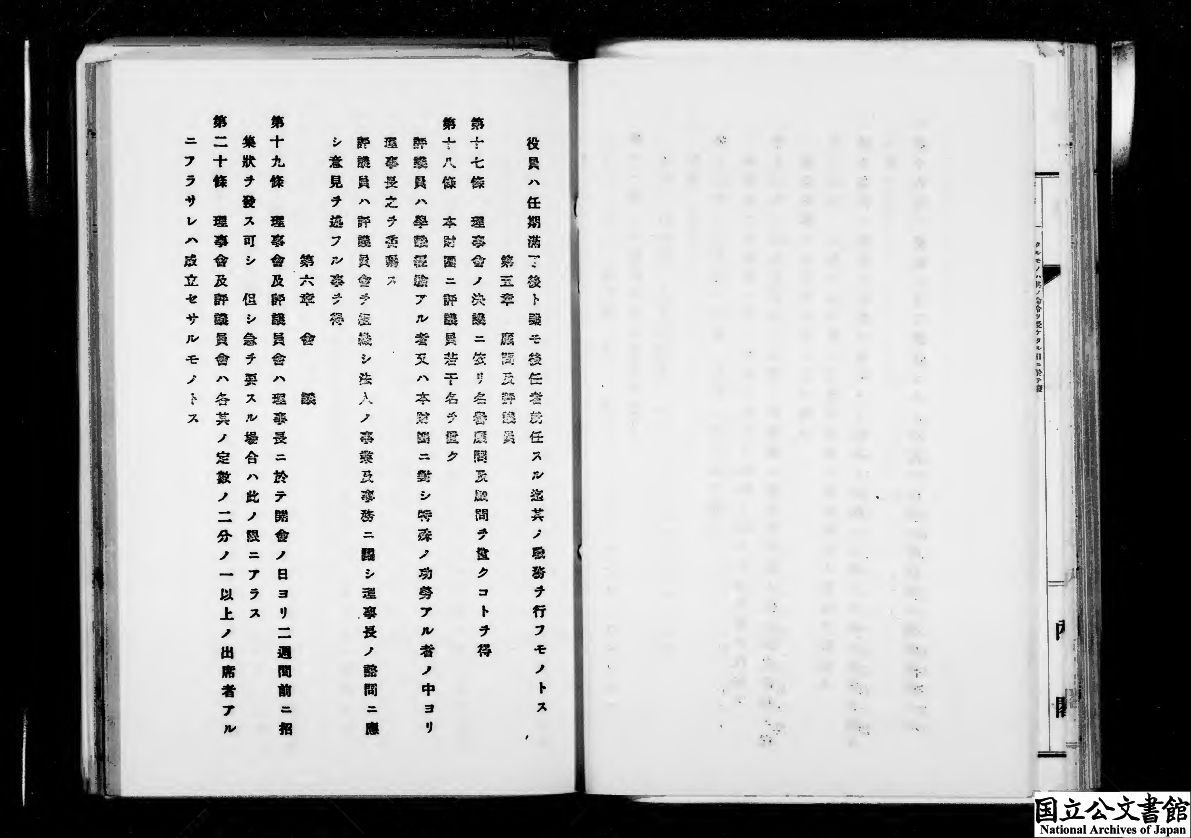 タルモノハ其ノ命令ヲ受ケタル日ニ於テ
内閣
役員ハ任期滿了後ト雖モ後任者就任スル迄其ノ職務ヲ行フモノトス
第五章 顧問及評議員
第十七條 理事會ノ決議ニ依リ名譽顧問及顧問ヲ置クコトヲ得
第十八條 本財團ニ評議員若干名ヲ置ク
評議員ハ學識經驗アル者又ハ本財團ニ對シ特殊ノ功勞アル者ノ中ヨリ
理事長之ヲ委囑ス
評議員ハ評議員會ヲ組織シ法人ノ事業及事務ニ關シ理事長ノ諮問ニ應
シ意見ヲ述フル事ヲ得
第六章 會議
第十九條 理事會及評議員會ハ理事長ニ於テ開會ノ日ヨリ二週間前ニ招
集狀ヲ發ス可シ 但シ急ヲ要スル場合ハ此ノ限ニアラス
第二十條 理事會及評議員會ハ各其ノ定數ノ二分ノ一以上ノ出席者アル
ニフラサレハ成立セサルモノトス
国立公文書館
National Archives of Japan